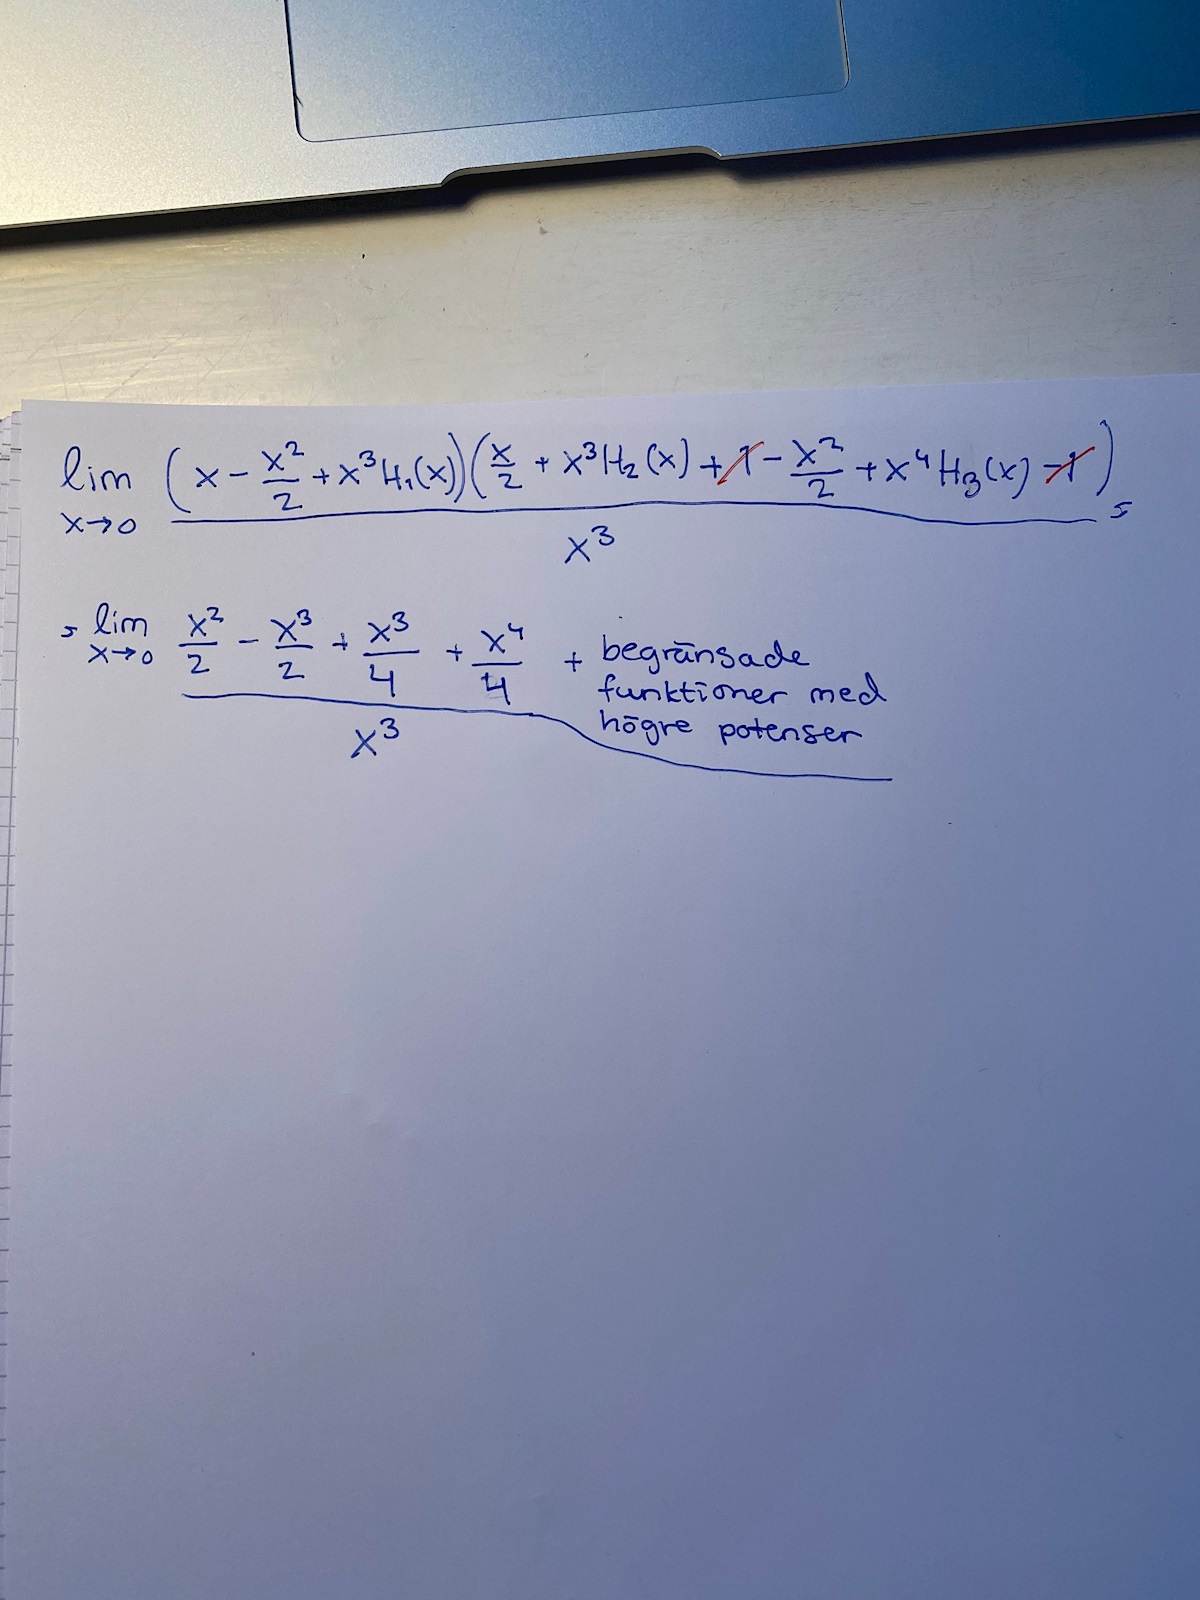 lim (x - x²/2 + x³H₁(x))(x/2 + x³H₂(x) + 1 - x²/2 + x⁴H₃(x) - 1) =
x→0 x³
= lim x²/2 - x³/2 + x³/4 + x⁴/4 + begränsade
x→0 funktioner med
x³ högre potenser